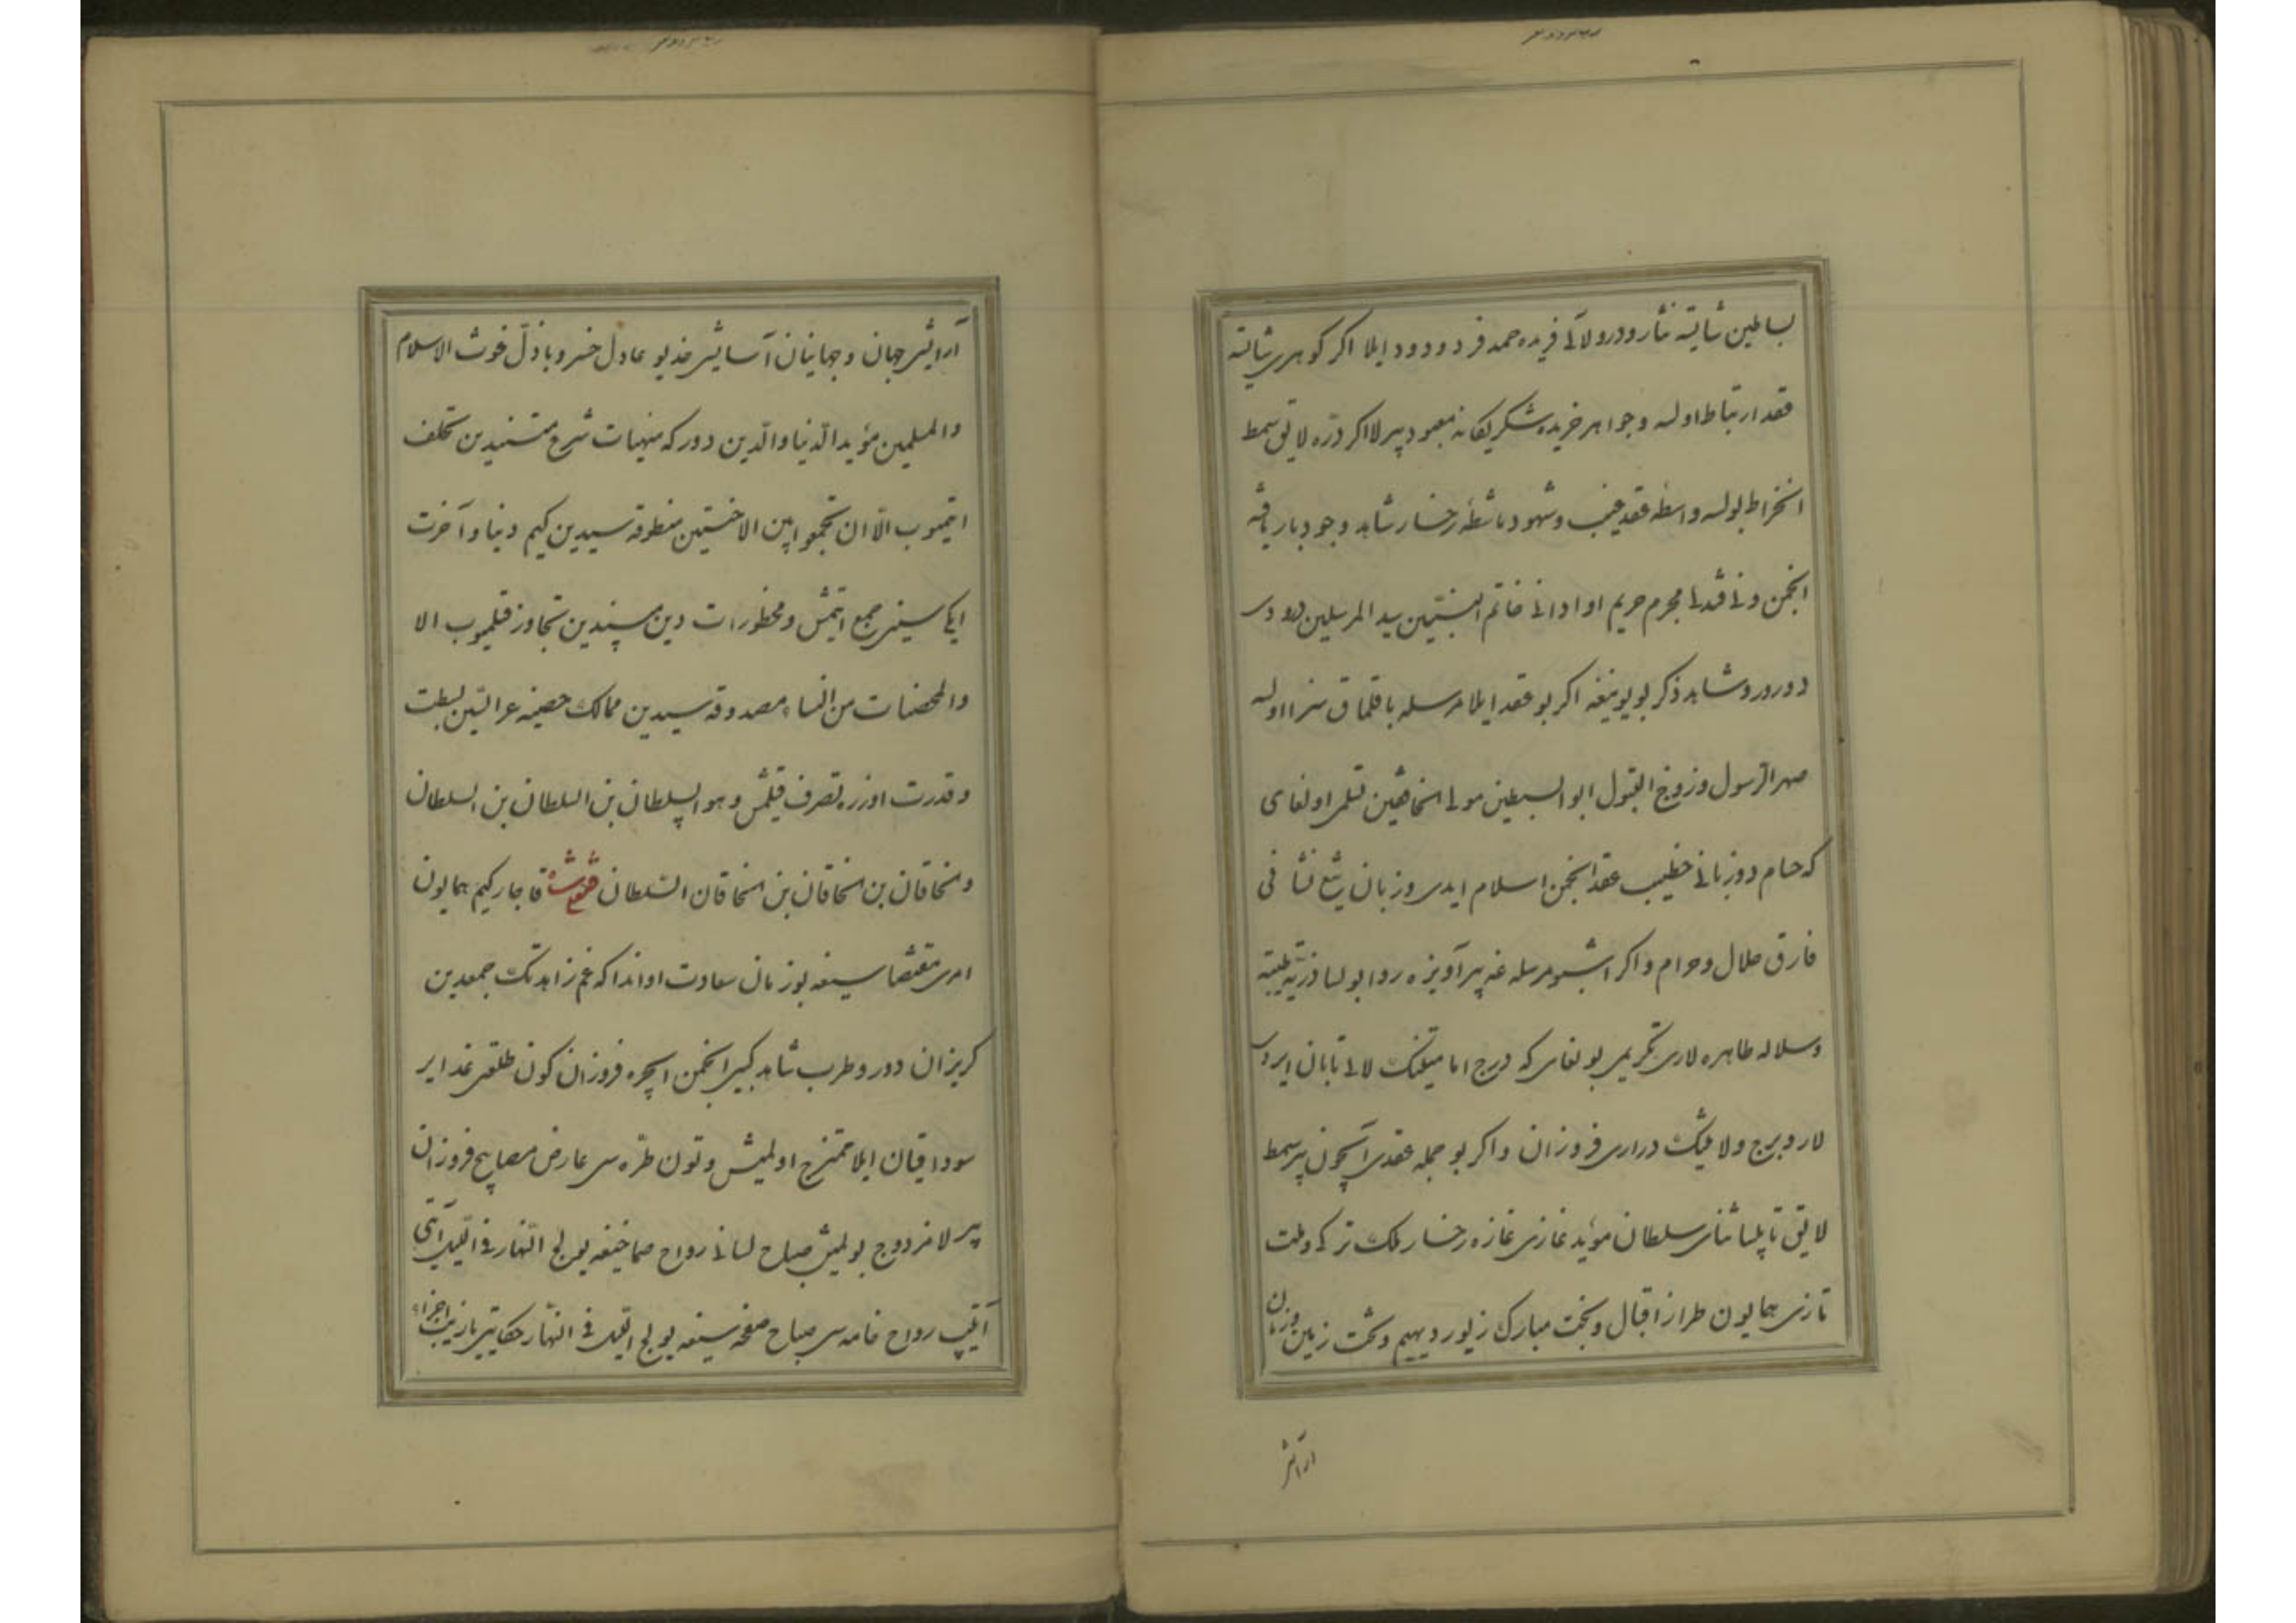 بساطین شایسته نثار و درو لآلی فریده حمد فرد و دود ایلا اکر کوهری شایسته
عقد ارتباط اولسه و جواهر خریده شکر یکانه معبود بیرلا اکر درّه لایق سمط
انخراط بولسه واسطه عقد غیب و شهود ماشطه رخسار شاهد وجود بار یافته
انجمن دنی فتدلی محرم حریم او ادانی خاتم النبیّین سید المرسلین درودی
دورور و شاهد ذکر بو یوینغه اکر بو عقد ایلا مرسله باقلماق سزا اولسه
صهر الرسول و زوج البتول ابو السبطین مولی الخافقین قلمی اولغای
که حسام دوزبانی خطیب عقد انجمن اسلام ایدی و زبان تیغ نشانی
فارق حلال و حرام و اکر اشبو مرسله غه بیر آویزه روا بولسا ذریّه طیّبه
و سلاله طاهره لاری تکریمی بولغای که درج امامیتنک لالی تابان ایردی
لار و برج ولایتنک دراری فروزان و اکر بو جمله عقدی آسیجون بیر سمط
لایق تاپیلسا ثنای سلطان مؤید غازی غازه رخسار ملک ترکی و ملت
تازی همایون طراز اقبال و بخت مبارک زیور دیهیم و تخت زمین و زمان
آرایش
آرایش جهان و جهانیان آسایش خدیو عادل خسرو باذل غوث الاسلام
والمسلمین مؤید الدنیا والدین دور که منهیات شرع متنیدین تخلف
ایتمیوب الّا ان تجمعوا بین الاختین منطوقه سیدین کیم دنیا و آخرت
ایکی سینی جمع ایتمش و محظورات دین مبیندین تجاوز قلمیوب الا
والمحصنات من النساء مصدوقه سیدین ممالک حصینه عرایسین بسطت
و قدرت اوزره تصرف قیلمش و هو السلطان بن السلطان بن السلطان
والخاقان بن الخاقان بن الخاقان السلطان فتحعلیشاه قاجار کیم همایون
امری مقتضاسینغه بو زمان سعادت اواندا که غم زاهد تک جمعدین
کریزان دور و طرب شاهد کبی انجمن ایچره فروزان کون طلعتی غدایر
سودا قیان ایلا ممتزج اولمیش و تون طرّه سی عارض مصابیح فروزان
بیرلا مزدوج بولمیش صباح لسانی رواح صماخیغه یولج النهار فی اللیل آیتی
آیتیب رواح خامه سی صباح صفحه سینغه یولج اللیل فی النهار حکایتی یازیب اجزاء